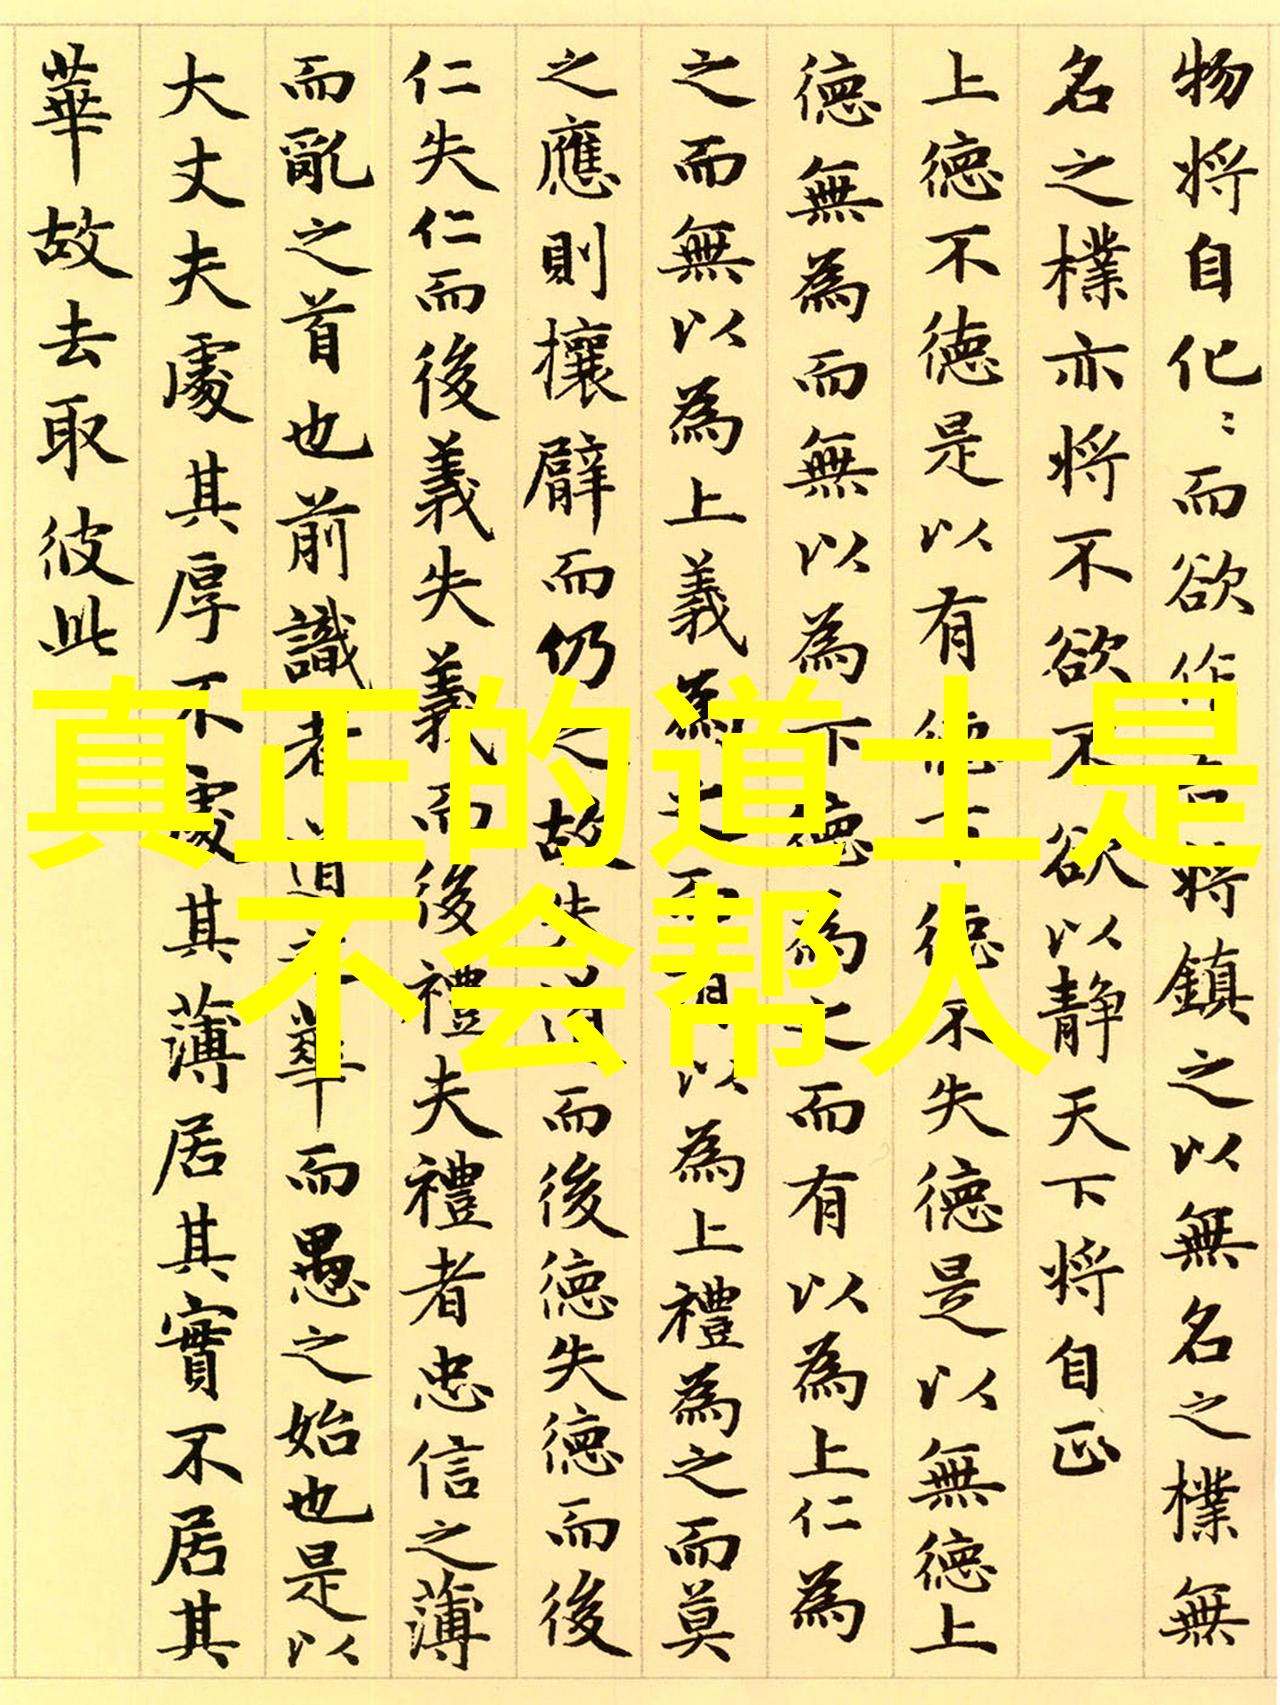 物将自化﹕而欲作吾将鎮之以無名之樸無
名之樸亦将不欲不欲以静天下将自正
上徳不徳是以有徳下徳不失徳是以無徳上
徳無為而無以為下徳為之而有以為上仁為
之而無以為上義為之而有以為上禮為之而莫
之應則攘臂而仍之故失道而後徳失徳而後
仁失仁而後義失義而後禮夫禮者忠信之薄
而亂之首也前識者道之華而愚之始也是以
大丈夫處其厚不處其薄居其實不居其
華故去取彼此
真正的道士是
不会帮人